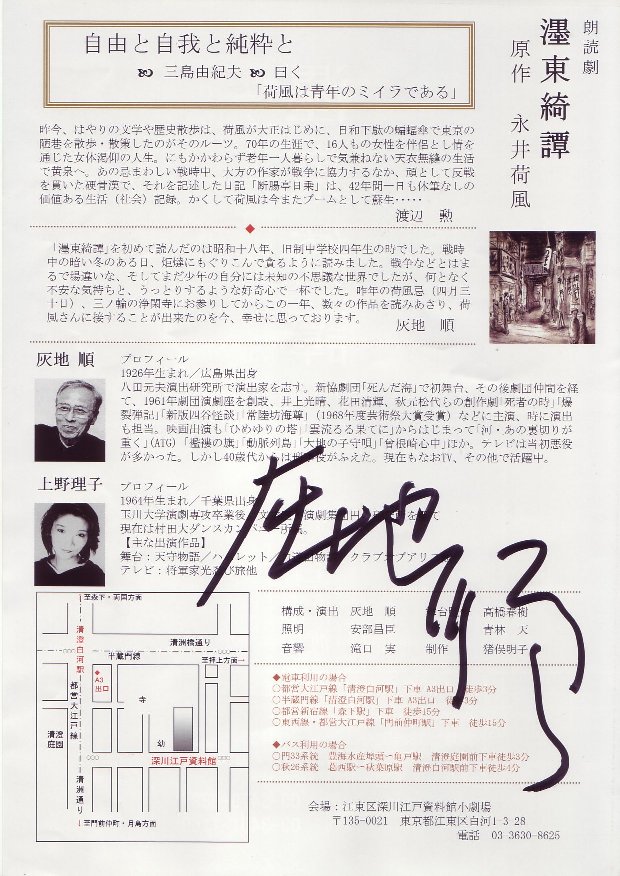 朗読劇
濹東綺譚
原作 永井荷風
自由と自我と純粋と
三島由紀夫 曰く
「荷風は青年のミイラである」
昨今、はやりの文学や歴史散歩は、荷風が大正はじめに、日和下駄の蝙蝠傘で東京の
陋巷を散歩・散策したのがそのルーツ。70年の生涯で、16人もの女性を伴侶とし情を
通じた女体渇仰の人生。にもかかわらず老年一人暮らしで気兼ねない天衣無縫の生活
で黄泉へ。あの忌まわしい戦時中、大方の作家が戦争に協力するなか、頑として反戦
を貫いた硬骨漢で、それを記述した日記「断腸亭日乗」は、42年間一日も休筆なしの
価値ある生活（社会）記録。かくして荷風は今またブームとして蘇生・・・・・
渡辺 勲
「濹東綺譚」を初めて読んだのは昭和十八年、旧制中学校四年生の時でした。戦時
中の暗い冬のある日、炬燵にもぐりこんで貪るように読みました。戦争などとはま
るで場違いな、そしてまだ少年の自分には未知の不思議な世界でしたが、何となく
不安な気持ちと、うっとりするような好奇心で一杯でした。昨年の荷風忌（四月三
十日）、三ノ輪の浄閑寺にお参りしてからこの一年、数々の作品を読みあさり、荷
風さんに接することが出来たのを今、幸せに思っております。
灰地 順
灰地 順 プロフィール
1926年生まれ／広島県出身
八田元夫演出研究所で演出家を志す。新協劇団「死んだ海」で初舞台、その後劇団仲間を経
て、1961年劇団演劇座を創設、井上光晴、花田清輝、秋元松代らの創作劇「死者の時」「爆
裂弾記」「新版四谷怪談」「常陸坊海尊」（1968年度芸術祭大賞受賞）などに主演、時に演出
も担当。映画出演も「ひめゆりの塔」「雲流るる果てに」からはじまって「河・あの裏切りが
重く」（ATG）「襤褸の旗」「動脈列島」「大地の子守唄」「曽根崎心中」ほか。テレビは当初悪役
が多かった。しかし40歳代からは 役がふえた。現在もなおTV、その他で活躍中。
上野理子 プロフィール
1964年生まれ／千葉県出身
玉川大学演劇専攻卒業後、文 演劇集団 て
現在は村田大ダンスカンパニー所属。
【主な出演作品】
舞台：天守物語／ハムレット／ クラブオブアリス
テレビ：将軍家光忍び旅他
灰地順
構成・演出 灰地 順 舞台 高橋春樹
照明 安部昌臣 青林 天
音響 滝口 実 制作 猪俣明子
◆電車利用の場合
○都営大江戸線「清澄白河駅」下車 A3出口 徒歩3分
○半蔵門線「清澄白河駅」下車 A3出口 3分
○都営新宿線「森下駅」下車 徒歩15分
○東西線・都営大江戸線「門前仲町駅」下車 徒歩15分
◆バス利用の場合
○門33系統 豊海水産埠頭→亀戸駅 清澄庭園前下車徒歩3分
○秋26系統 葛西駅→秋葉原駅 清澄白河駅前下車徒歩4分
至森下・両国方面
清澄白河駅
清洲橋通り
半蔵門線
至押上方面→
A3
出口
都営大江戸線
寺
幼
清澄
庭園
深川江戸資料館
清洲通り
至門前仲町・月島方面
会場：江東区深川江戸資料館小劇場
〒135-0021 東京都江東区白河1-3-28
電話 03-3630-8625